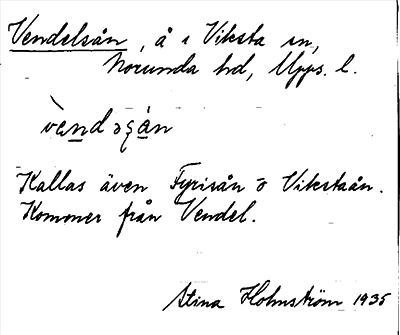 Vendelsån, å i Viksta sn,
Norunda hd, Upps. l.
vèndəʂån
Kallas även Fyrisån o Vikstaån.
Kommer från Vendel.
Stina Holmström 1935